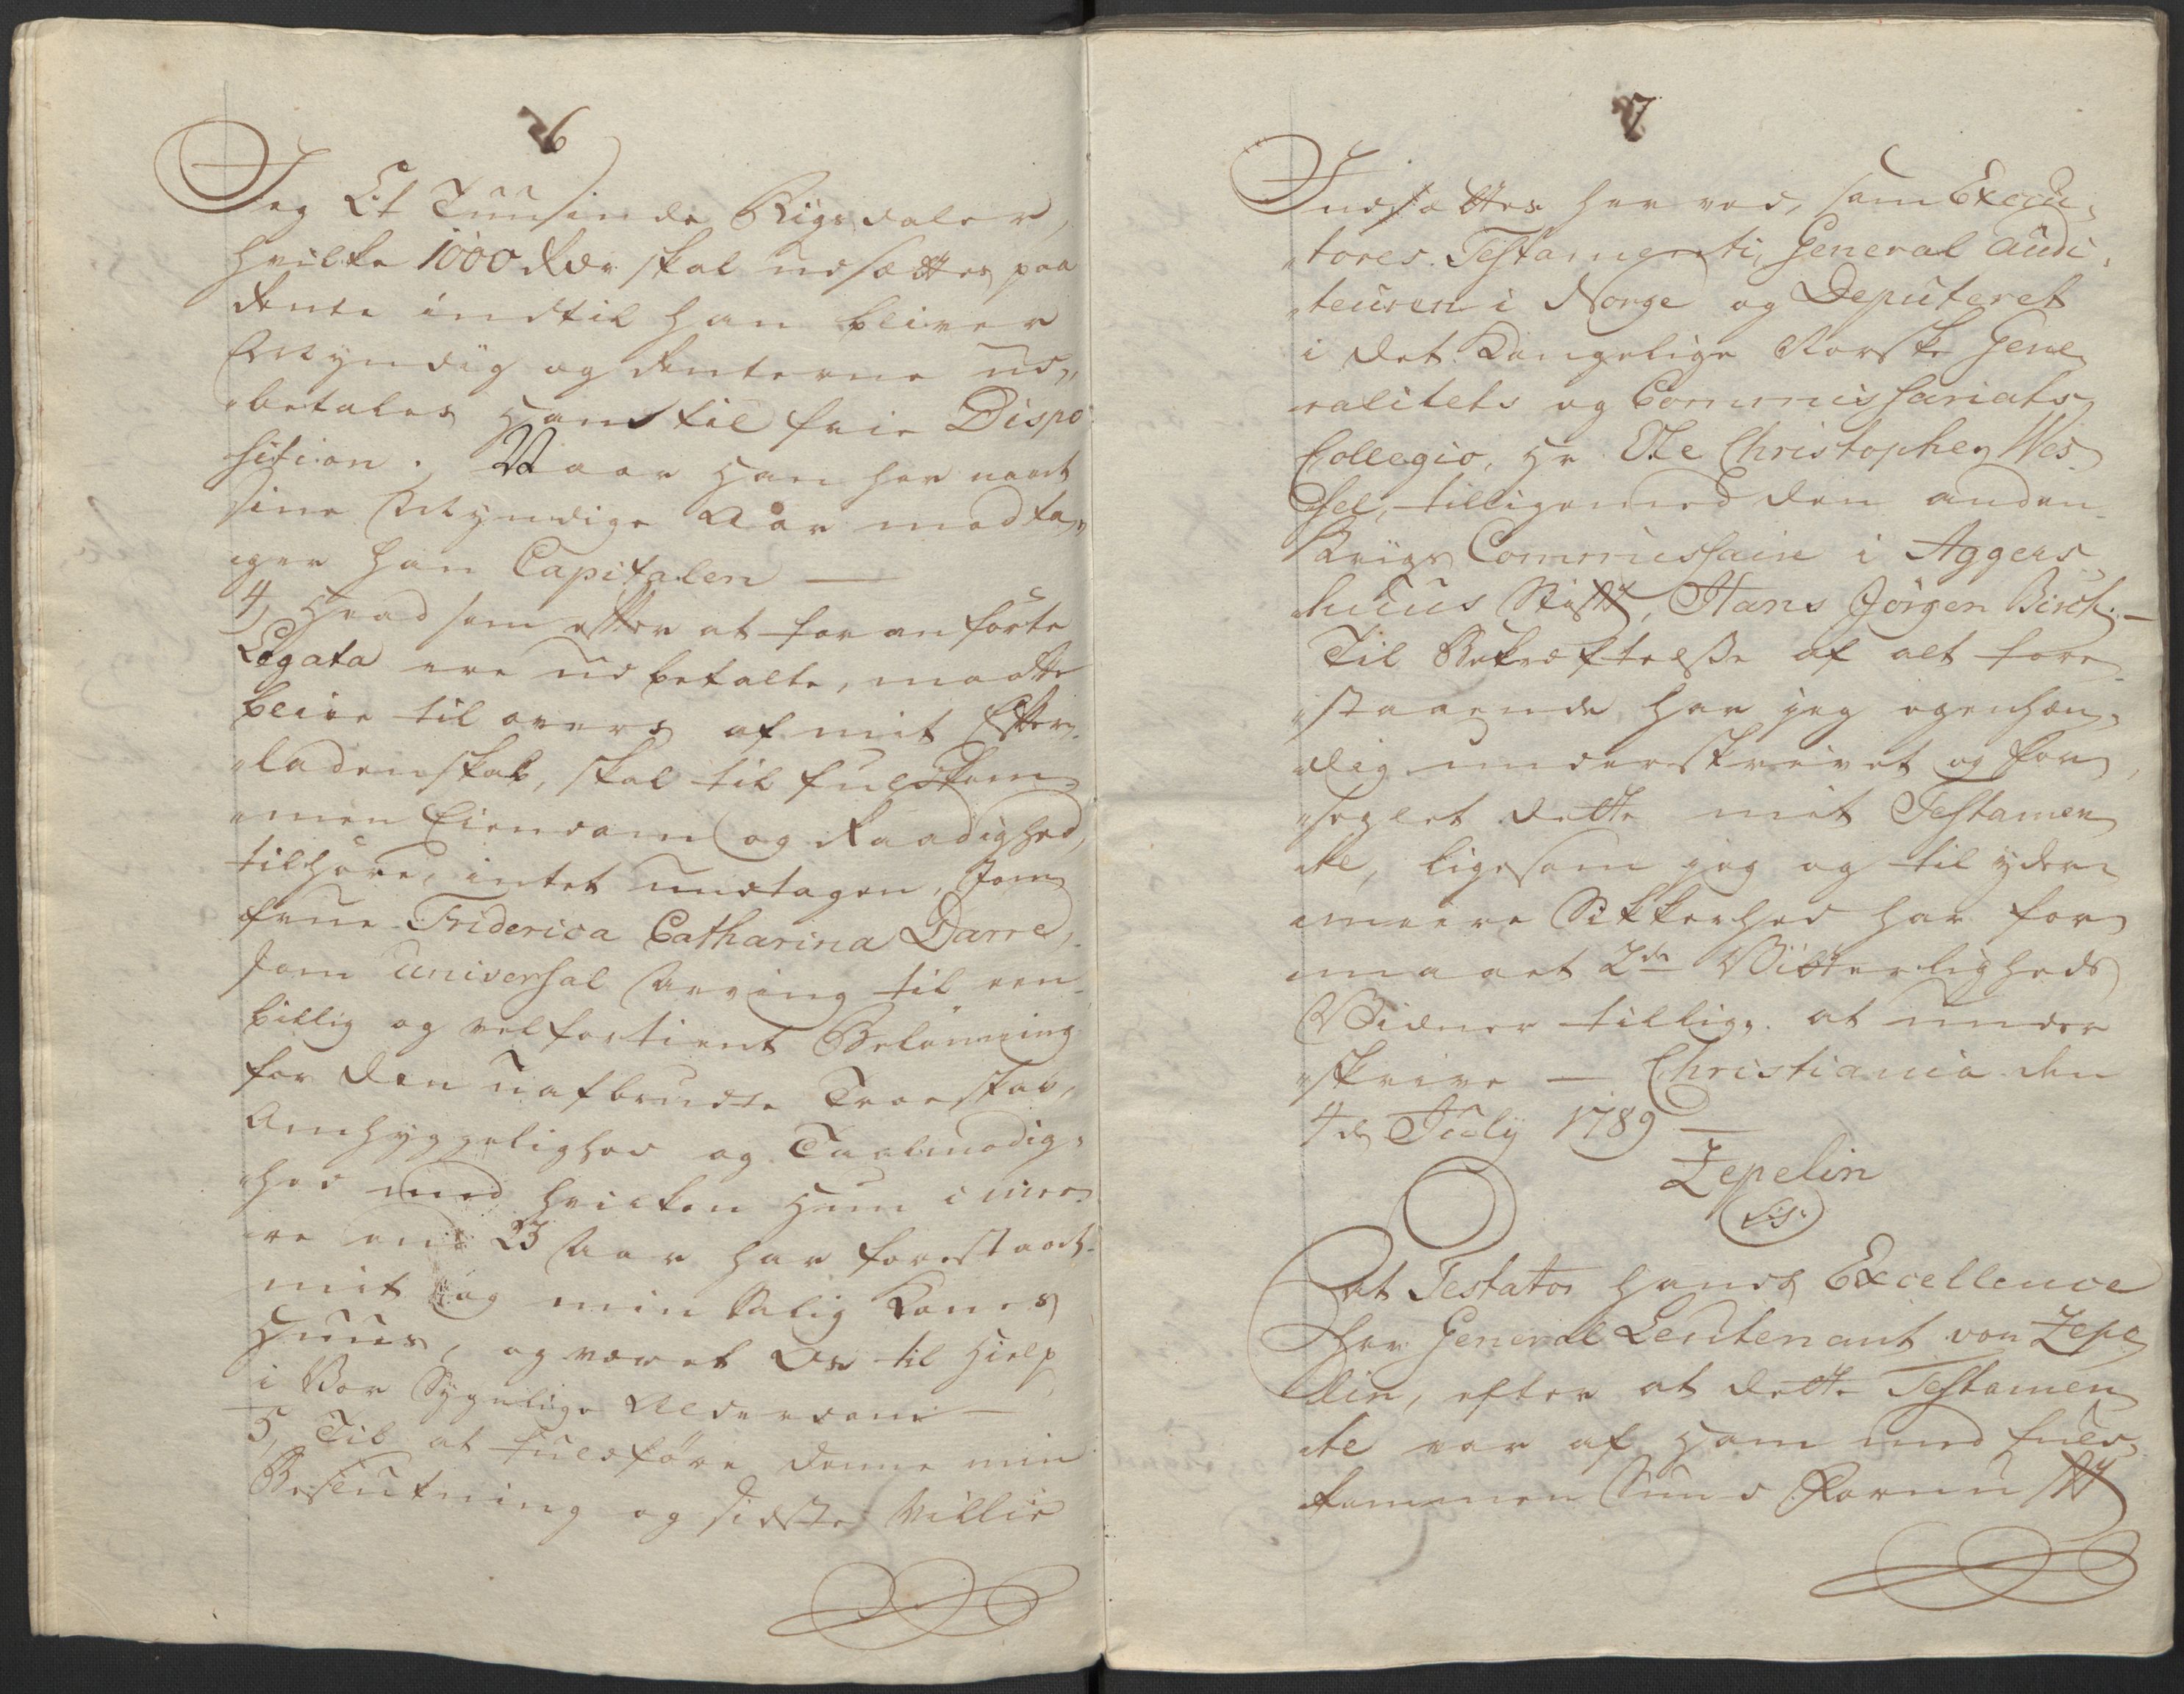 6
Jeg Et Tuusinde Rigsdaler,
hvilke 1000 Rdr skal udsættes paa
Rente indtil han bliver
Myndig og Renterne ud„
„betales ham til frie Dispo
sition. Naar han har naaet
sine Myndige Aar modta„
„ger han Capitalen —
4, Hvad som efter at foranførte
Legata ere udbetalte, maatte
blive til overs af mit Efter„
„ladenskab, skal til fuldkom„
„men Eiendom og Raadighed,
tilhøre, intet undtagen, Jom
frue Friderica Catharina Darre,
som universal Arving til een
billig og velfortient Belønning
for den uafbrudte Troeskab,
Omhyggelighed og Taalmodig„
„hed med hvilken Hun i mee„
„re end 23 Aar har forestaaet
mit og min Salig Kones
Huus, og været Os til Hielp
i Vor Sygelige Alderdom —
5, Til at fuldføre denne min
Beslutning og sidste Villie
7
Indsættes her ved, som Execu„
„tores Testamenti, General Audi„
„teuren i Norge og Deputeret
i det Kongelige Norske Gene
ralitets og Commissariats
Collegio, Hr Ole Christopher Wes
sel, tilligemed den anden
Krigs Commissair i Aggers„
„huus Stift, Hans Jörgen Birch. —
Til Bekræftelse af alt fore„
„staaende har jeg egenhæn„
„dig underskrevet og for„
„seglet dette mit Testamen
„te, ligesom jeg og til yder„
„meere Sikkerhed har for„
„maaet 2de Vitterligheds
Vidner tillige at under
„skrive — Christiania den
4de July 1789 —
Zepelin
(L.S.)
At Testator hands Excellence
Herr General Leutenant von Zepe
lin, efter at dette Testamen
„te var af ham med fuld„
„kommen Sund Fornuft